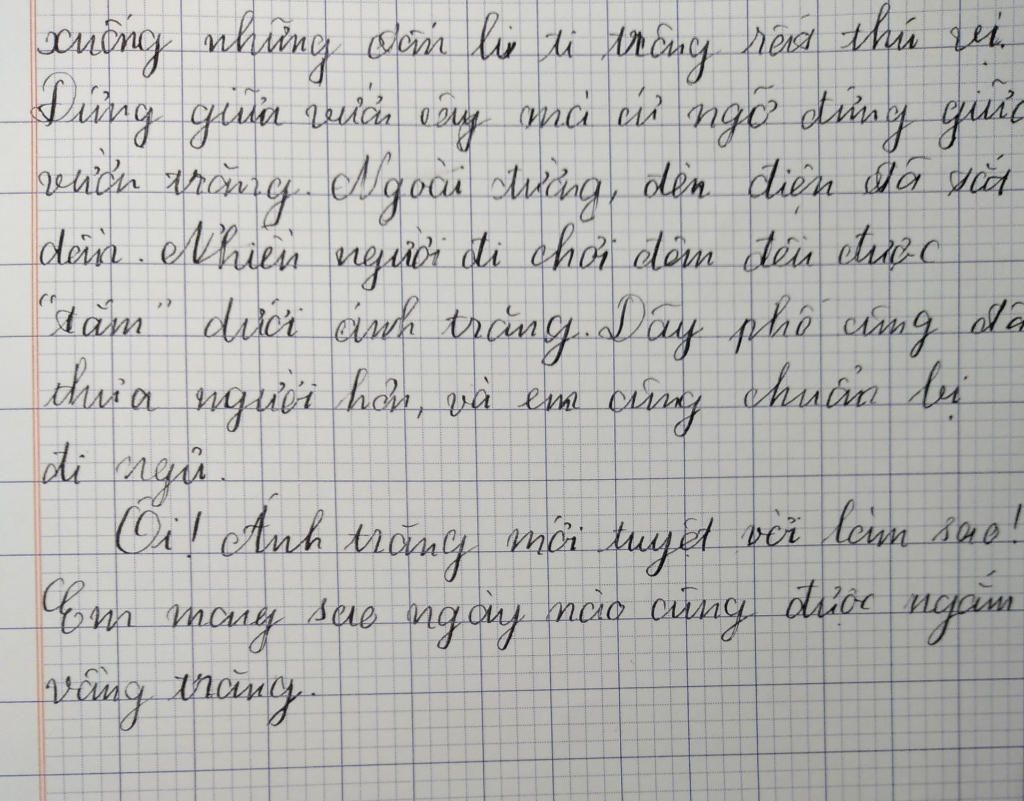 xuống những đốm li ti trông rất thú vị.
Đứng giữa vườn cây mà cứ ngỡ đứng giữa
vườn trăng. Ngoài đường, đèn điện đã tắt
dần. Nhiều người đi chơi đêm đều được
"tắm" dưới ánh trăng. Dãy phố cũng đã
thưa người hơn, và em cũng chuẩn bị
đi ngủ.
Ôi! Ánh trăng mới tuyệt vời làm sao!
Em mong sao ngày nào cũng được ngắm
vầng trăng.